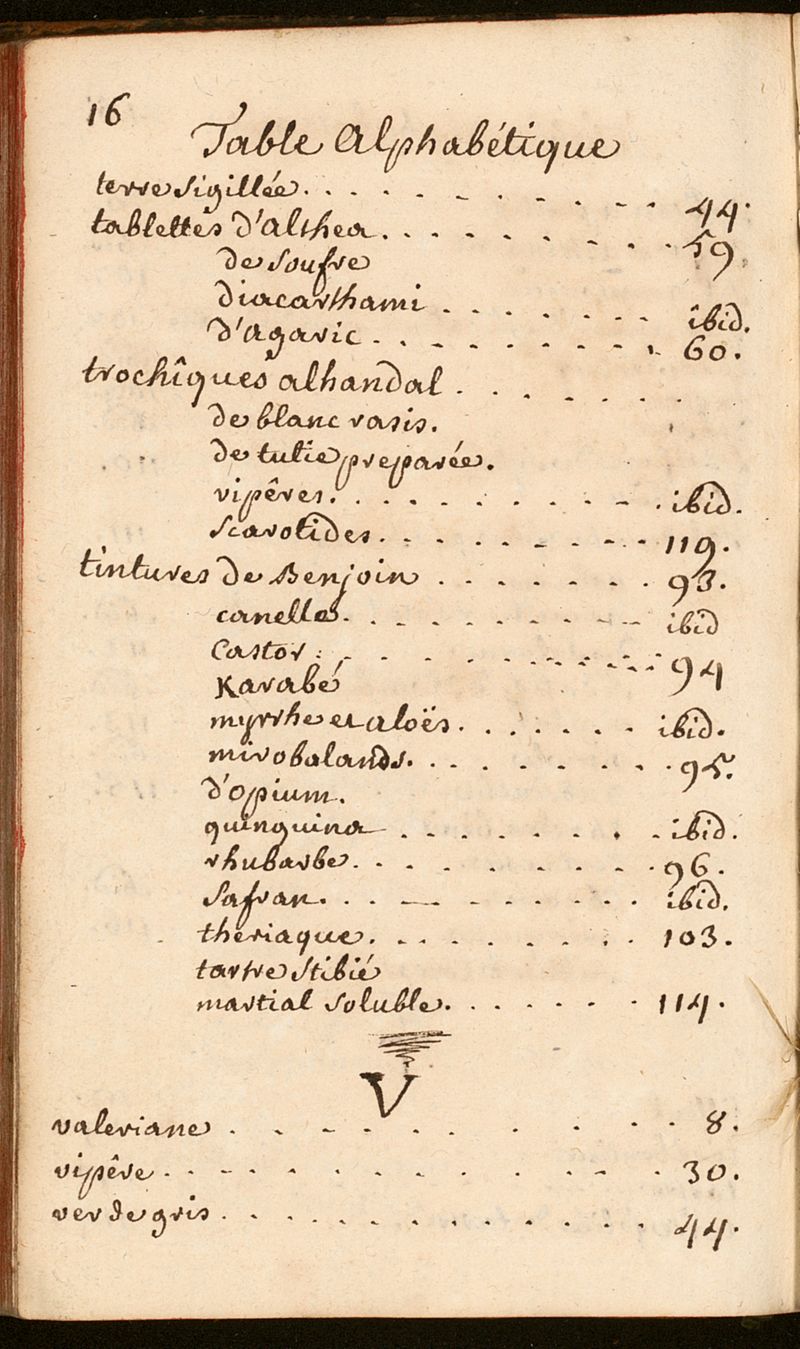 16
Table Alphabétique
terre sigillée . . . . . . . . . 44.
tablettes d'althea . . . . . . . . 59
de soufre
diacarthami . . . . . . . ibid.
d'agaric . . . . . . . . . 60.
trochîques alhandal . . . . . . .
de blanc rasis.
de tutie preparée.
vipêres . . . . . . . . . . ibid.
scarotides . . . . . . . . 119.
tintures de Benjoin . . . . . . . 93.
canelle . . . . . . . . . ibid
Castor . . . . . . . . . . 94
Karabé
myrrhe et aloës . . . . . . . ibid.
mirobalands . . . . . . . . 95.
d'opium.
quinquina . . . . . . . ibid.
rhubarbe . . . . . . . . 96.
safran . . . . . . . . . ibid.
theriaque . . . . . . . . 103.
tartre stibié
martial soluble . . . . . . 114.
V
valeriane . . . . . . . . . 8.
vipêre . . . . . . . . . . . 30.
ver de gris . . . . . . . . . . . 44.